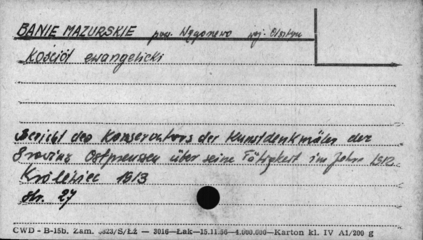 BANIE MAZURSKIE pow. Węgorzewo woj. Olsztyn
Kościół ewangelicki
Bericht des Konservators der Kunstdenkmäler der
Provinz Ostpreussen über seine Tätigkeit im Jahre 1912
Królewiec 1913
Str. 27
CWD - B-15b. Zam. /S/Łż — 3016—Łak—15.11.56—4.000.000—Karton kl. IV A1/200 g